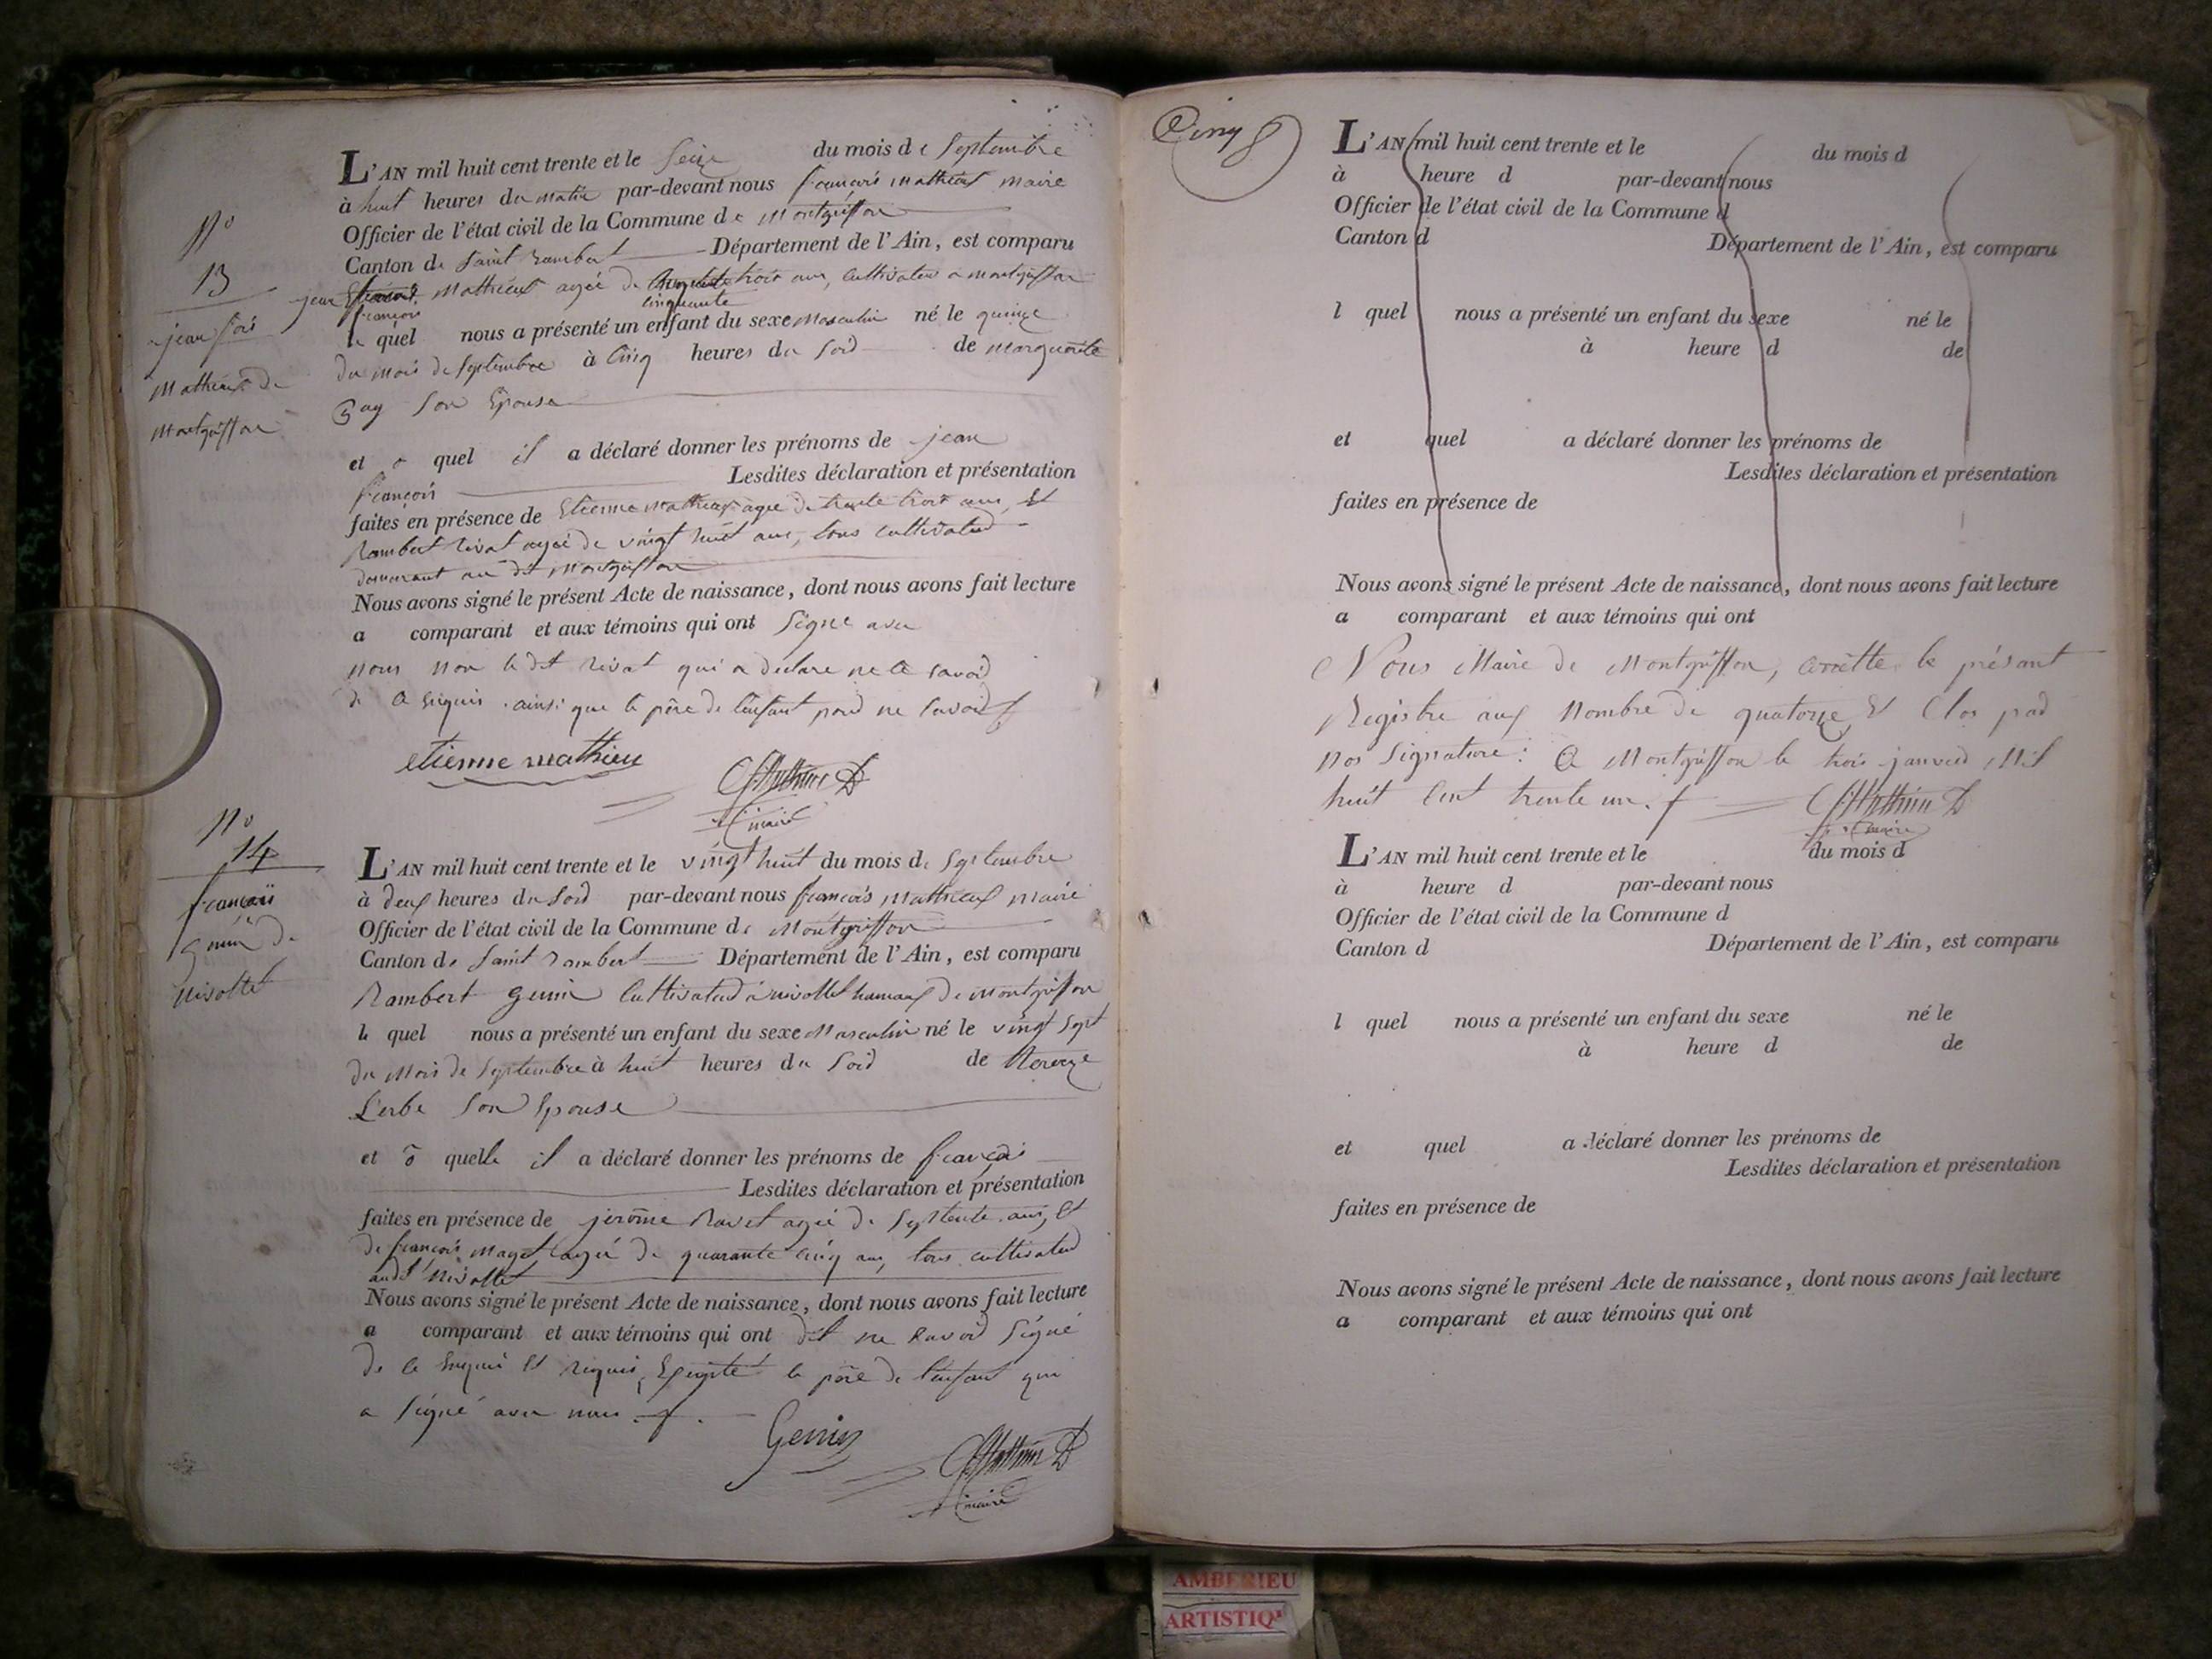 L'AN mil huit cent trente et le Seize du mois de Septembre
à huit heures du matin par-devant nous françois mathieux maire
Officier de l'état civil de la Commune de Montgriffon
Canton de Saint rambert Département de l'Ain, est comparu
jean françois Mathieux agée de cinquante trois ans, cultivateur a montgriffon
le quel nous a présenté un enfant du sexe Masculin né le quinze
du mois de Septembre à Cinq heures du Soir de marguerite
Gay Son Epouse
et o quel il a déclaré donner les prénoms de jean
françois Lesdites déclaration et présentation
faites en présence de Etienne Mathieux agée de trente trois ans, Et
Rambert rivat agée de vingt huit ans, tous cultivateur
demeurant au dit Montgriffon
Nous avons signé le présent Acte de naissance, dont nous avons fait lecture
a comparant et aux témoins qui ont Signé avec
nous non le dit rivat qui a déclaré ne le savoir
de ainsi que le père de l'enfant pour ne Savoir
etienne mathieu
maire
No
13
jean fois
Mathieux de
Montgriffon
No
14
françois
Genin de
nivollet
L'AN mil huit cent trente et le vingt huit du mois de Septembre
à deux heures du Soir par-devant nous françois Mathieux maire
Officier de l'état civil de la Commune de Montgriffon
Canton de Saint rambert Département de l'Ain, est comparu
Rambert genin Cultivateur à nivollet hameaux de Montgriffon
le quel nous a présenté un enfant du sexe Masculin né le vingt Sept
du Mois de Septembre à huit heures du Soir de
Lerbe Son Epouse
et o quelle il a déclaré donner les prénoms de françois
Lesdites déclaration et présentation
faites en présence de jerôme Ravet agée de Septente ans, Et
de françois Maget agée de quarante cinq ans, tous cultivateur
audit Nivollet
Nous avons signé le présent Acte de naissance, dont nous avons fait lecture
a comparant et aux témoins qui ont dit ne Savoir Signé
de ce Enquis Et requis, Excepte le père de l'enfant qui
a Signé avec nous
Genin
maire
Cinq
L'AN mil huit cent trente et le du mois d
à heure d par-devant nous
Officier de l'état civil de la Commune d
Canton d Département de l'Ain, est comparu
l quel nous a présenté un enfant du sexe né le
à heure d de
et quel a déclaré donner les prénoms de
Lesdites déclaration et présentation
faites en présence de
Nous avons signé le présent Acte de naissance, dont nous avons fait lecture
a comparant et aux témoins qui ont
Nous Maire de Montgriffon, arrêtte le présant
Registre aux Nombre de quatorze Et Clos par
nos Signature: A Montgriffon le trois janvier Mil
huit Cent trente un.
maire
L'AN mil huit cent trente et le du mois d
à heure d par-devant nous
Officier de l'état civil de la Commune d
Canton d Département de l'Ain, est comparu
l quel nous a présenté un enfant du sexe né le
à heure d de
et quel a déclaré donner les prénoms de
Lesdites déclaration et présentation
faites en présence de
Nous avons signé le présent Acte de naissance, dont nous avons fait lecture
a comparant et aux témoins qui ont
AMBERIEU
ARTISTIQ